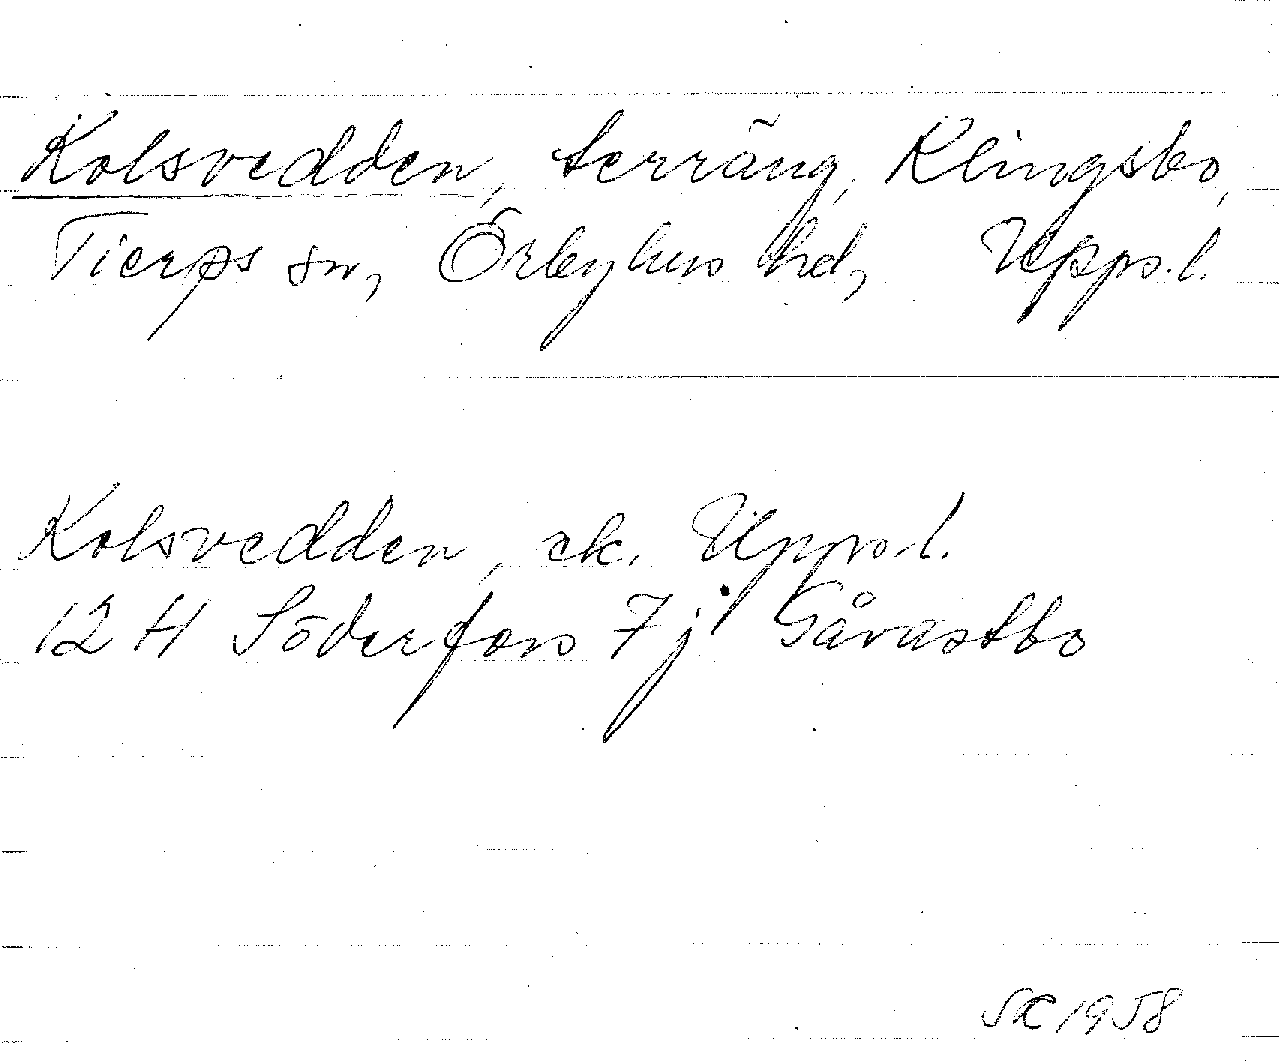 Kolsvedden, terräng, Klingsbo,
Tierps sn, Örbyhus hd, Upps.l.
Kolsvedden, ek. Upps.l.
12 H Söderfors 7j Gåvastbo
1958